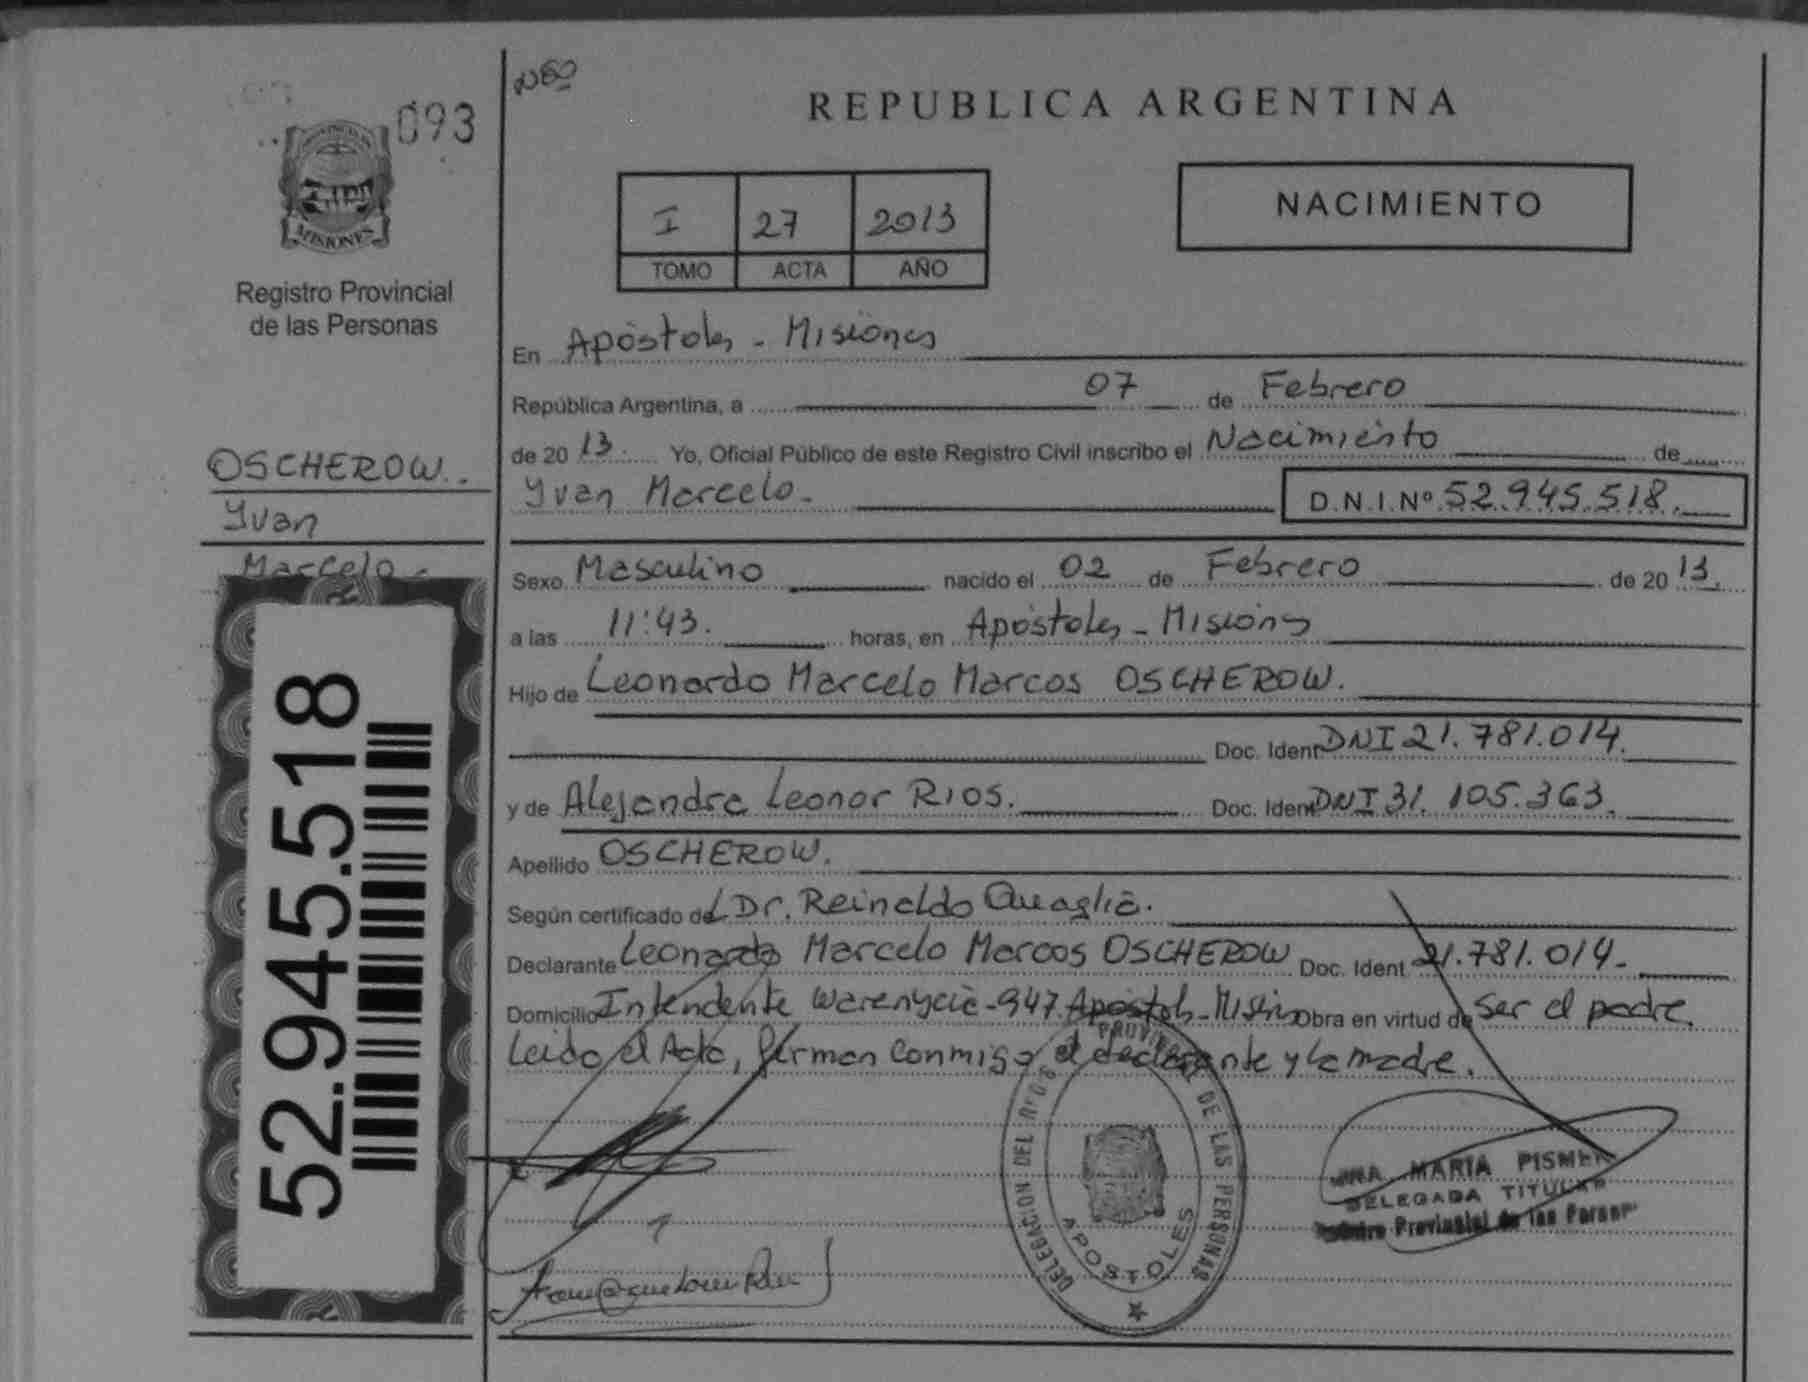 093
MISIONES
Registro Provincial
de las Personas
OSCHEROW.
Yvan
Marcelo -
52.945.518
REPUBLICA ARGENTINA
I 27 2013
TOMO ACTA AÑO
NACIMIENTO
En Apóstoles - Misiones
República Argentina, a 07 de Febrero
de 20 13. Yo, Oficial Público de este Registro Civil inscribo el Nacimiento de
Yvan Marcelo. D.N.I.Nº 52.945.518.
Sexo Masculino nacido el 02 de Febrero de 20 13.
a las 11:43. horas, en Apóstoles - Misiones
Hijo de Leonardo Marcelo Marcos OSCHEROW.
Doc. Ident DNI 21.781.014.
y de Alejandra Leonor RIOS. Doc. Ident DNI 31.105.363.
Apellido OSCHEROW.
Según certificado del Dr. Reinaldo Quaglia.
Declarante Leonardo Marcelo Marcos OSCHEROW Doc. Ident 21.781.014.
Domicilio Intendente Warenycia-947 Apóstoles-Misiones Obra en virtud de ser el padre.
Leido el Acta, firman conmigo el declarante y la madre.
DELEGACION DEL REG. PROVINCIAL DE LAS PERSONAS
APOSTOLES
MARIA PISMEN
DELEGADA TITULAR
Registro Provincial de las Personas